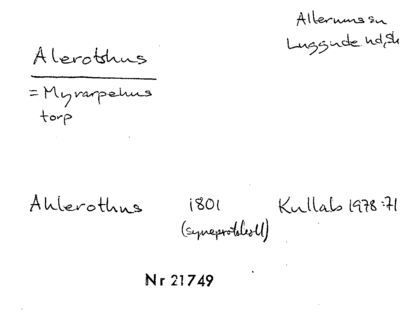 Allerums sn
Luggude hd, Sk
Alerothus
= Myrarpehus
torp
Ahlerothus 1801 Kullab 1978:71
(syneprotokoll)
Nr 21749